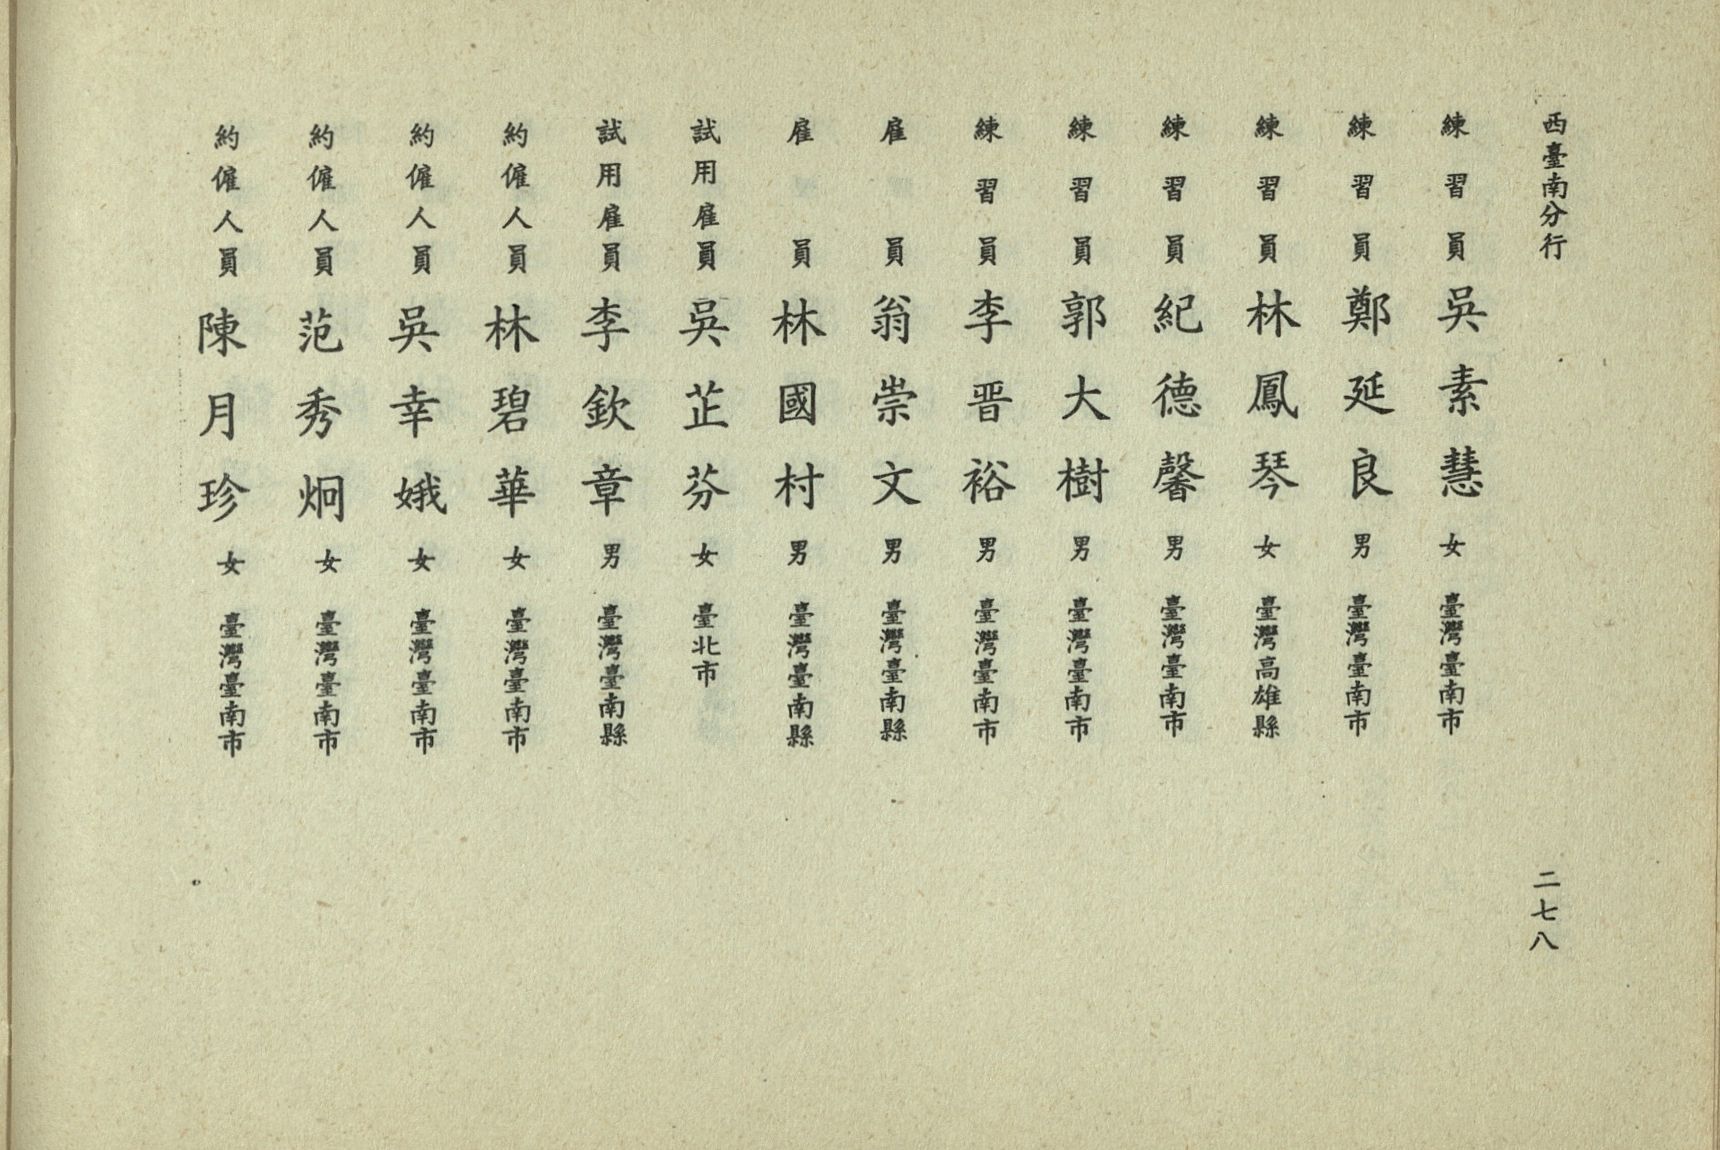 西臺南分行
二七八
練習員 吳素慧 女 臺灣臺南市
練習員 鄭延良 男 臺灣臺南市
練習員 林鳳琴 女 臺灣高雄縣
練習員 紀德馨 男 臺灣臺南市
練習員 郭大樹 男 臺灣臺南市
練習員 李晋裕 男 臺灣臺南市
雇員 翁崇文 男 臺灣臺南縣
雇員 林國村 男 臺灣臺南縣
試用雇員 吳芷芬 女 臺北市
試用雇員 李欽章 男 臺灣臺南縣
約僱人員 林碧華 女 臺灣臺南市
約僱人員 吳幸娥 女 臺灣臺南市
約僱人員 范秀炯 女 臺灣臺南市
約僱人員 陳月珍 女 臺灣臺南市